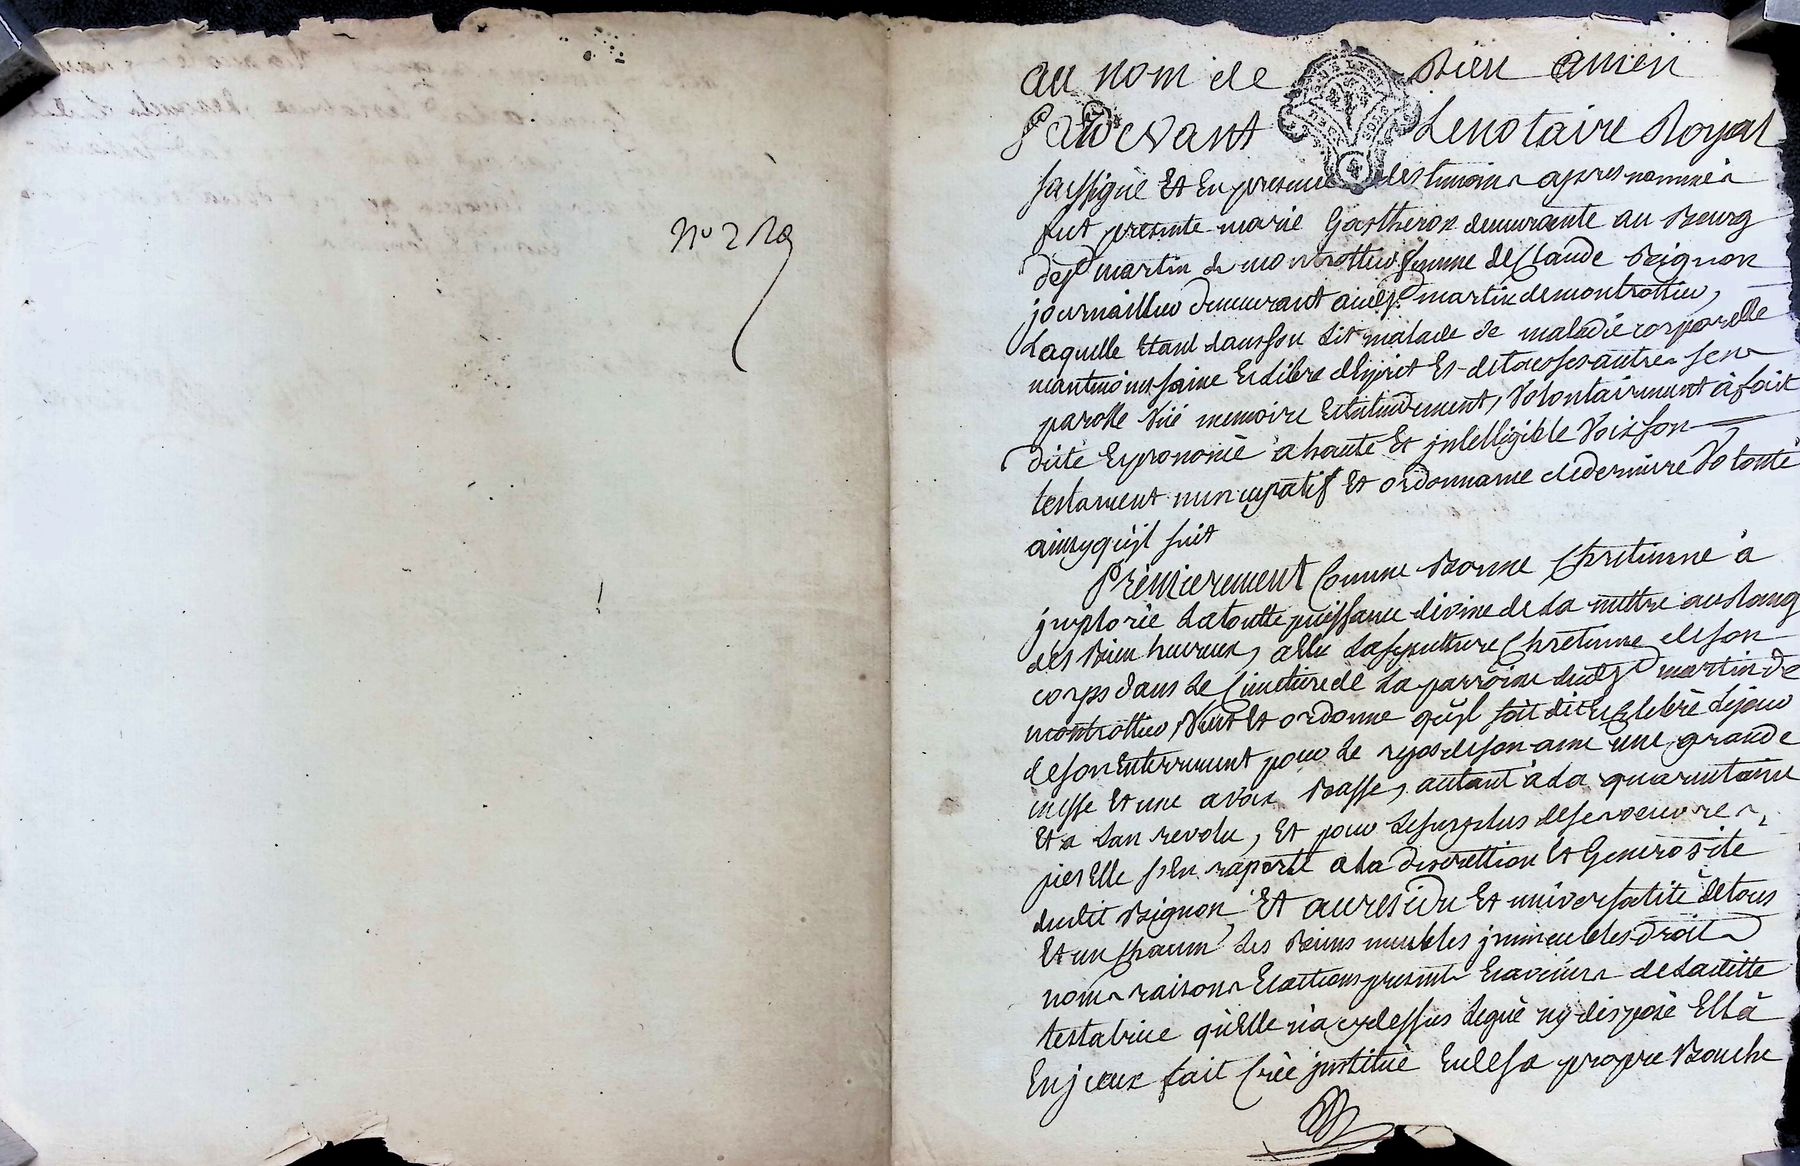 N° 2
au nom de Dieu amen
Pardevant Le notaire Royal
soussigné Et En presence des temoins apres nommés
fut presente marie Gastheron demeurante au Bourg
de st martin de montrottier femme de Claude Bignon
journaillier demeurant audt st martin de montrottier,
Laquelle Etant dans son Lit malade de maladie corporelle
neantmoins saine Et Libre desprit Et de tous ses autres sens
parolle vüe memoire Et Entendement, Volontairement à fait
dicté Et prononcé à haute Et jntelligible Voix son
testament nuncupatif Et ordonnance de derniere Volonté
ainsy qu'jl suit
Premierement Comme Bonne Chretienne à
jmplorée La toutte puissance divine de La mettre au Rang
des Bien heureux, Elle La sepulture Chretienne de son
corps dans Le Cimetiere de La parroisse dudt st martin de
montrottier, Veut Et ordonne qu'jl soit dit Et Celebré Le jour
de son Enterrement pour Le repos de son ame une grande
messe Et une a voix Basse, autant à La quarantaine
Et a Lan revolu, Et pour Le surplus de ses oeuvres
pies Elle s'En raporte a La discrettion Et Generosité
dudit Bignon, Et au residu Et universalité de tous
Et un Chacun Les Biens meubles jmmeubles droits
noms raisons Et actions presents Et avenirs de Laditte
testatrice qu'Elle n'a cy dessus Legué ny disposé Ell à
En jceux fait Créé jnstitué Et de sa propre Bouche